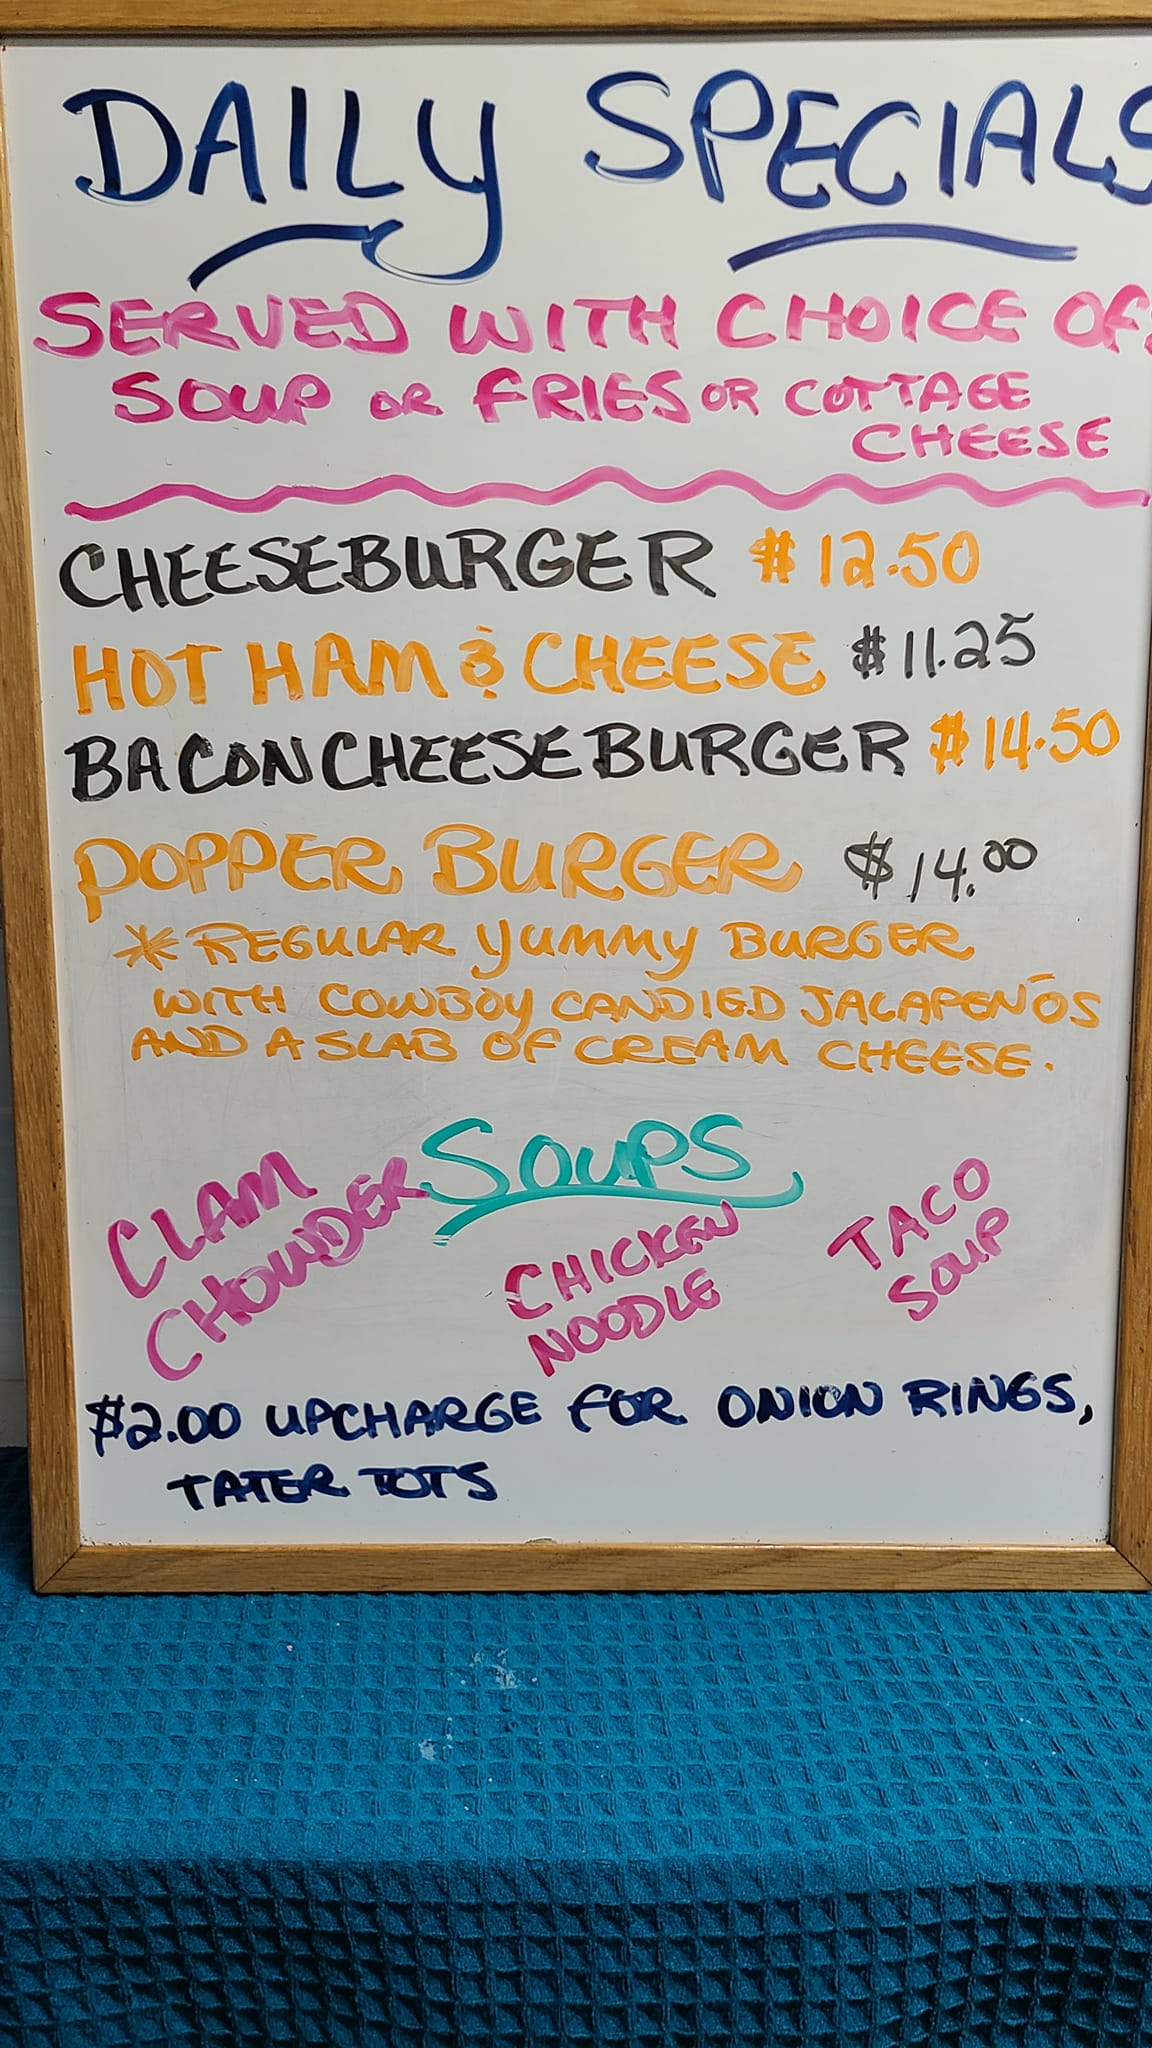 DAILY SPECIALS
SERVED WITH CHOICE OF:
SOUP OR FRIES OR COTTAGE
CHEESE
CHEESEBURGER $12.50
HOT HAM & CHEESE $11.25
BACON CHEESEBURGER $14.50
POPPER BURGER $14.00
* REGULAR YUMMY BURGER
WITH COWBOY CANDIED JALAPEÑOS
AND A SLAB OF CREAM CHEESE.
SOUPS
CLAM
CHOWDER
CHICKEN
NOODLE
TACO
SOUP
$2.00 UPCHARGE FOR ONION RINGS,
TATER TOTS